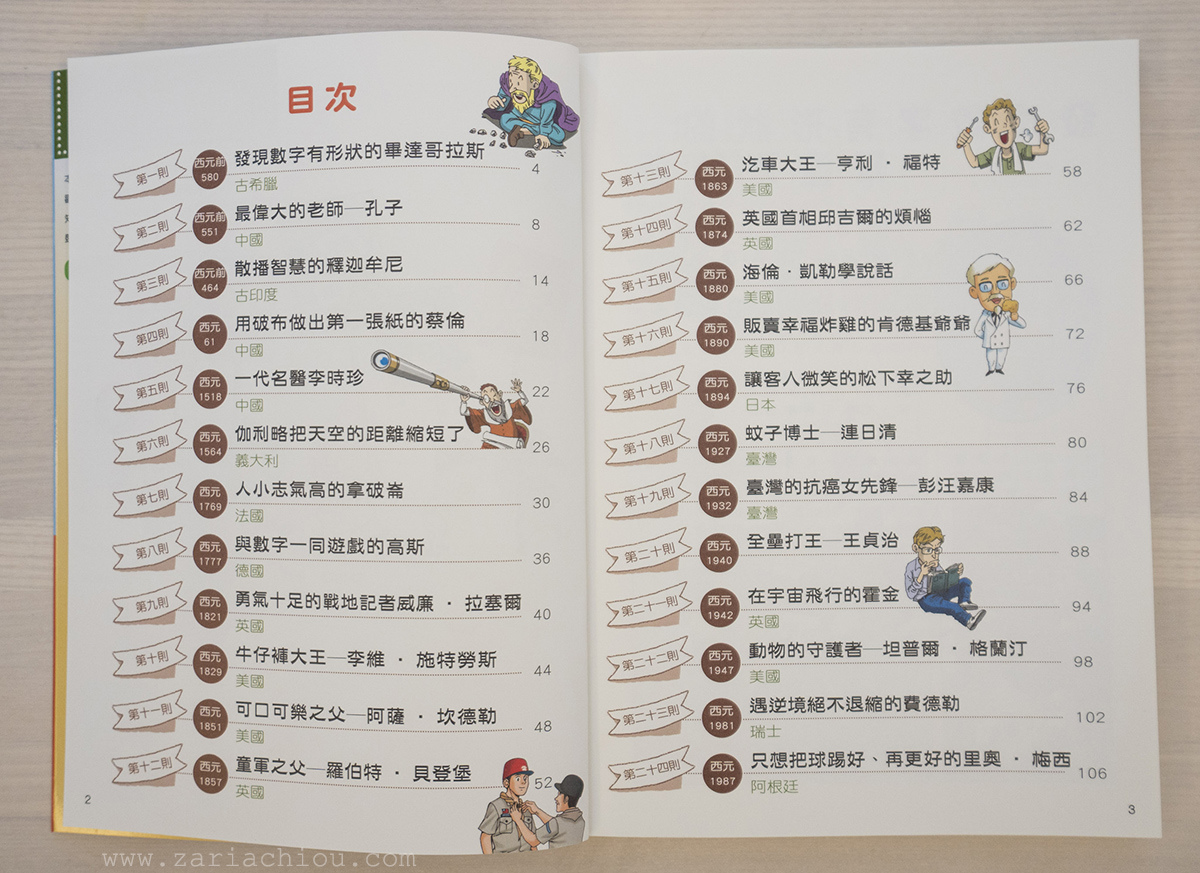 目次
第一則 西元前 580 發現數字有形狀的畢達哥拉斯 4
古希臘
第二則 西元前 551 最偉大的老師─孔子 8
中國
第三則 西元前 464 散播智慧的釋迦牟尼 14
古印度
第四則 西元 61 用破布做出第一張紙的蔡倫 18
中國
第五則 西元 1518 一代名醫李時珍 22
中國
第六則 西元 1564 伽利略把天空的距離縮短了 26
義大利
第七則 西元 1769 人小志氣高的拿破崙 30
法國
第八則 西元 1777 與數字一同遊戲的高斯 36
德國
第九則 西元 1821 勇氣十足的戰地記者威廉・拉塞爾 40
英國
第十則 西元 1829 牛仔褲大王─李維・施特勞斯 44
美國
第十一則 西元 1851 可口可樂之父─阿薩・坎德勒 48
美國
第十二則 西元 1857 童軍之父─羅伯特・貝登堡 52
英國
2
第十三則 西元 1863 汽車大王─亨利・福特 58
美國
第十四則 西元 1874 英國首相邱吉爾的煩惱 62
英國
第十五則 西元 1880 海倫・凱勒學說話 66
美國
第十六則 西元 1890 販賣幸福炸雞的肯德基爺爺 72
美國
第十七則 西元 1894 讓客人微笑的松下幸之助 76
日本
第十八則 西元 1927 蚊子博士─連日清 80
臺灣
第十九則 西元 1932 臺灣的抗癌女先鋒─彭汪嘉康 84
臺灣
第二十則 西元 1940 全壘打王─王貞治 88
第二十一則 西元 1942 在宇宙飛行的霍金 94
英國
第二十二則 西元 1947 動物的守護者─坦普爾・格蘭汀 98
美國
第二十三則 西元 1981 遇逆境絕不退縮的費德勒 102
瑞士
第二十四則 西元 1987 只想把球踢好、再更好的里奧・梅西 106
阿根廷
3
www.zariachiou.com